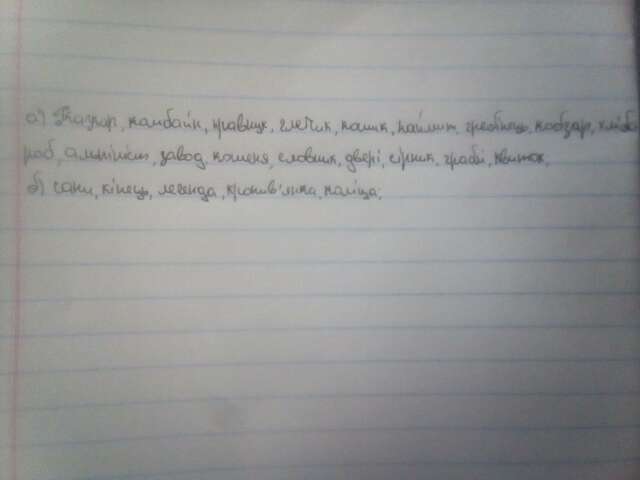 а) Казкар, комбайн, кравчук, глечик, кошик, наймит, гребінець, кобзар, хлібо
роб, альпініст, завод, кошеня, словник, двері, сірник, граблі, квиток,
б) сани, кінець, легенда, кропив'янка, поліца;